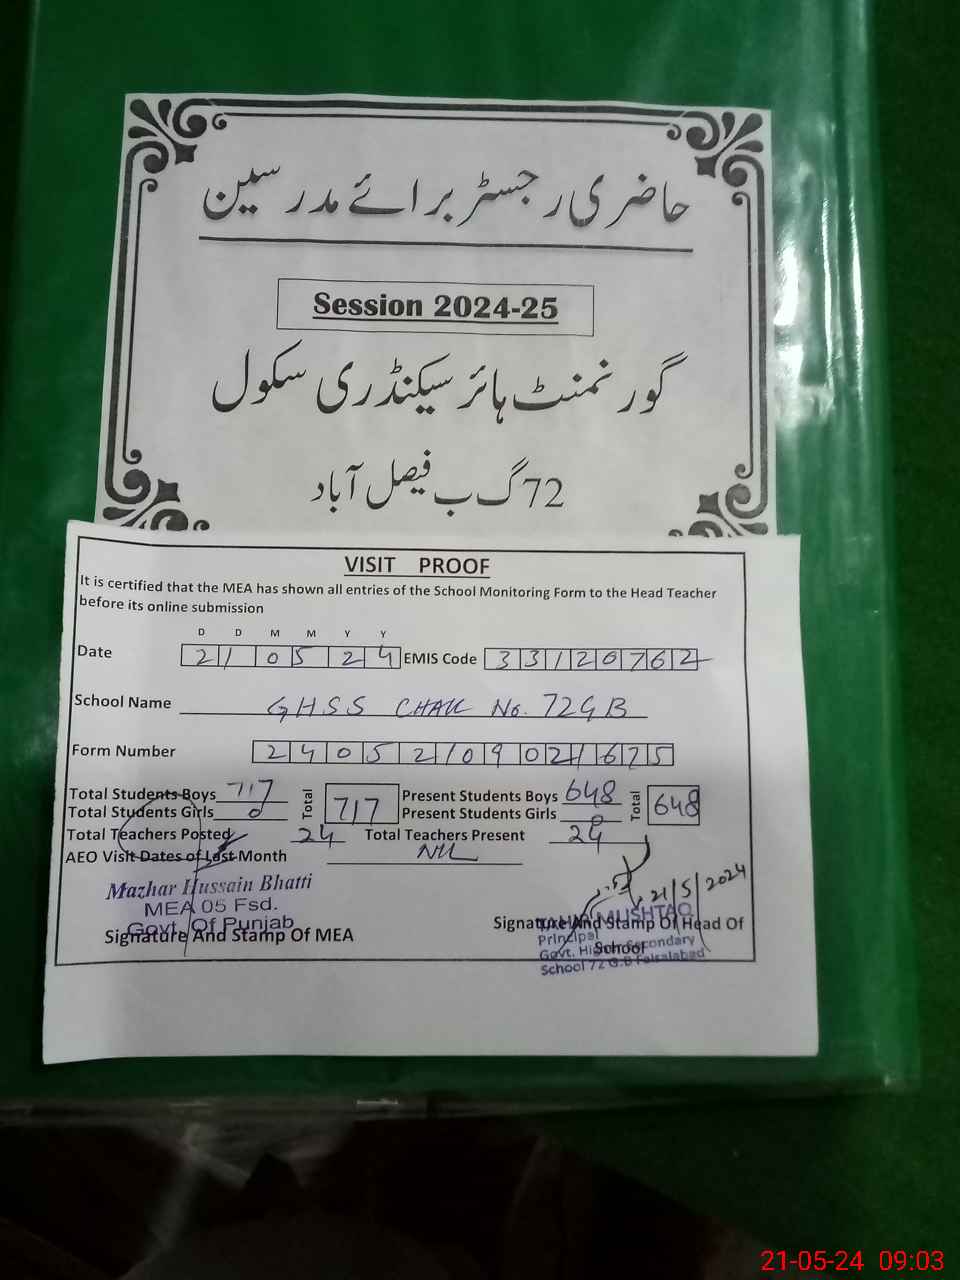 حاضری رجسٹر برائے مدرسین
Session 2024-25
گورنمنٹ ہائر سیکنڈری سکول
72 گ ب فیصل آباد
VISIT PROOF
It is certified that the MEA has shown all entries of the School Monitoring Form to the Head Teacher
before its online submission
D D M M Y Y
Date 21 05 24 EMIS Code 33120762
School Name GHSS CHAK No. 72GB
Form Number 240521090211675
Total Students Boys 717 Total 717 Present Students Boys 648 Total 648
Total Students Girls 0 Present Students Girls 0
Total Teachers Posted 24 Total Teachers Present 24
AEO Visit Dates of Last Month Nil
Mazhar Hussain Bhatti
MEA 05 Fsd.
Govt. Of Punjab
Signature And Stamp Of MEA
21/5/2024
TAHIR MUSHTAQ
Signature And Stamp Of Head Of
School
Principal
Govt. Higher Secondary
School 72 G.B Faisalabad
21-05-24 09:03